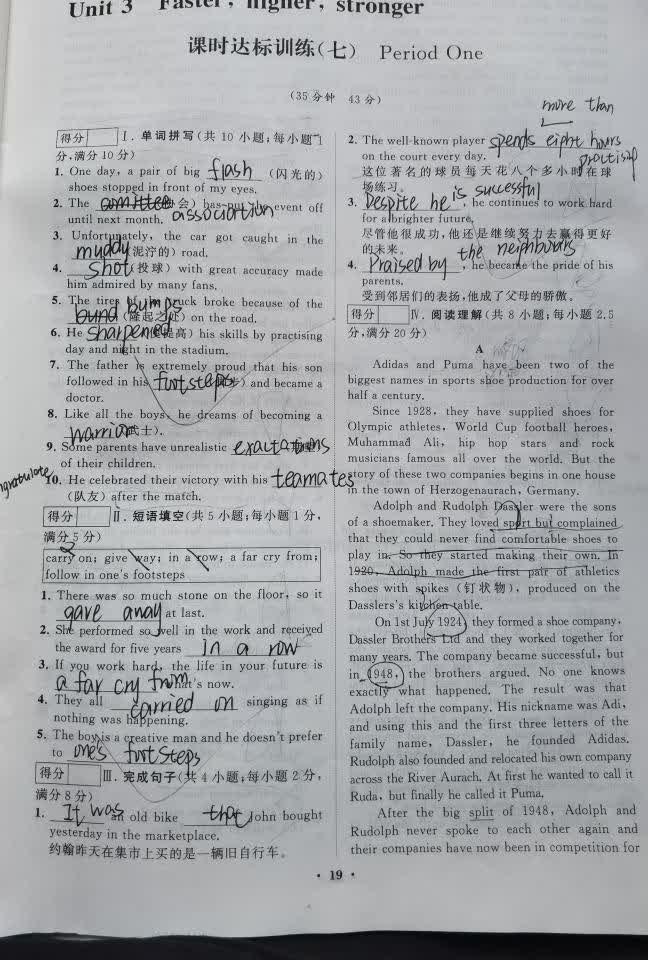 Unit 3 Faster, higher, stronger
课时达标训练(七) Period One
(35分钟 43分)
得分 Ⅰ. 单词拼写(共10小题;每小题1
分,满分10分)
1. One day, a pair of big flash (闪光的)
shoes stopped in front of my eyes.
2. The committee association (协会) has put the event off
until next month.
3. Unfortunately, the car got caught in the
muddy (泥泞的) road.
4. shot (投球) with great accuracy made
him admired by many fans.
5. The tires truck broke because of the
bund bumps (隆起之处) on the road.
6. He sharpened (使提高) his skills by practising
day and night in the stadium.
7. The father is extremely proud that his son
followed in his footsteps and became a
doctor.
8. Like all the boys, he dreams of becoming a
warrior (武士).
9. Some parents have unrealistic
of their children.
10. He celebrated their victory with his teamates
(队友) after the match.
得分 Ⅱ. 短语填空(共5小题;每小题1分,
满分5分)
carry on; give way; in a row; a far cry from;
follow in one's footsteps
1. There was so much stone on the floor, so it
gave away at last.
2. She performed so well in the work and received
the award for five years in a row
3. If you work hard, the life in your future is
a far cry from what's now.
4. They all carried on singing as if
nothing was happening.
5. The boy is a creative man and he doesn't prefer
to one's footsteps
得分 Ⅲ. 完成句子(共4小题;每小题2分,
满分8分)
1. It was an old bike that John bought
yesterday in the marketplace.
约翰昨天在集市上买的是一辆旧自行车。
more than
2. The well-known player spends eight hours practising
on the court every day.
这位著名的球员每天花八个多小时在球
场练习。
3. Despite he is successful, he continues to work hard
for a brighter future.
尽管他很成功,他还是继续努力去赢得更好
的未来。
4. Praised by the neighbours, he became the pride of his
parents.
受到邻居们的表扬,他成了父母的骄傲。
得分 Ⅳ. 阅读理解(共8小题;每小题2.5
分,满分20分)
A
Adidas and Puma have been two of the
biggest names in sports shoe production for over
half a century.
Since 1928, they have supplied shoes for
Olympic athletes, World Cup football heroes,
Muhammad Ali, hip hop stars and rock
musicians famous all over the world. But the
story of these two companies begins in one house
in the town of Herzogenaurach, Germany.
Adolph and Rudolph Dassler were the sons
of a shoemaker. They loved sport but complained
that they could never find comfortable shoes to
play in. So they started making their own. In
1920, Adolph made the first pair of athletics
shoes with spikes (钉状物), produced on the
Dasslers's kitchen table.
On 1st July 1924, they formed a shoe company,
Dassler Brothers Ltd and they worked together for
many years. The company became successful, but
in 1948, the brothers argued. No one knows
exactly what happened. The result was that
Adolph left the company. His nickname was Adi,
and using this and the first three letters of the
family name, Dassler, he founded Adidas.
Rudolph also founded and relocated his own company
across the River Aurach. At first he wanted to call it
Ruda, but finally he called it Puma.
After the big split of 1948, Adolph and
Rudolph never spoke to each other again and
their companies have now been in competition for
• 19 •